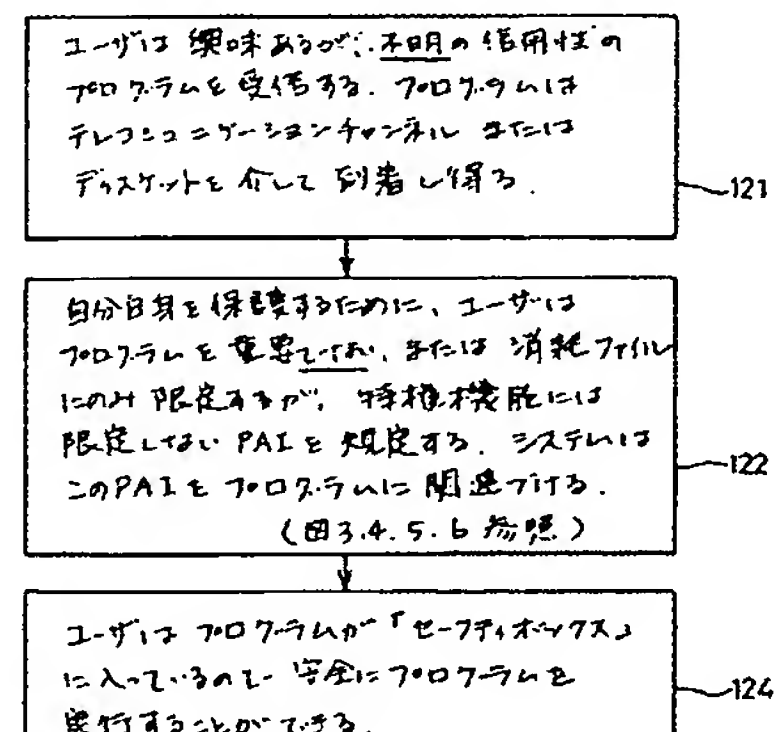 ユーザは 興味あるが、不明の信用性の
プログラムを受信する. プログラムは
テレコミュニケーションチャンネル または
ディスケットを介して到着し得る.
121
自分自身を保護するために、ユーザは
プログラムを重要でない、または消耗ファイル
にのみ限定するが、特権機能には
限定しない PAI を規定する. システムは
このPAIをプログラムに関連づける.
(図3.4.5.6 参照)
122
ユーザは プログラムが「セーフティボックス」
に入っているので 安全にプログラムを
実行することができる.
124